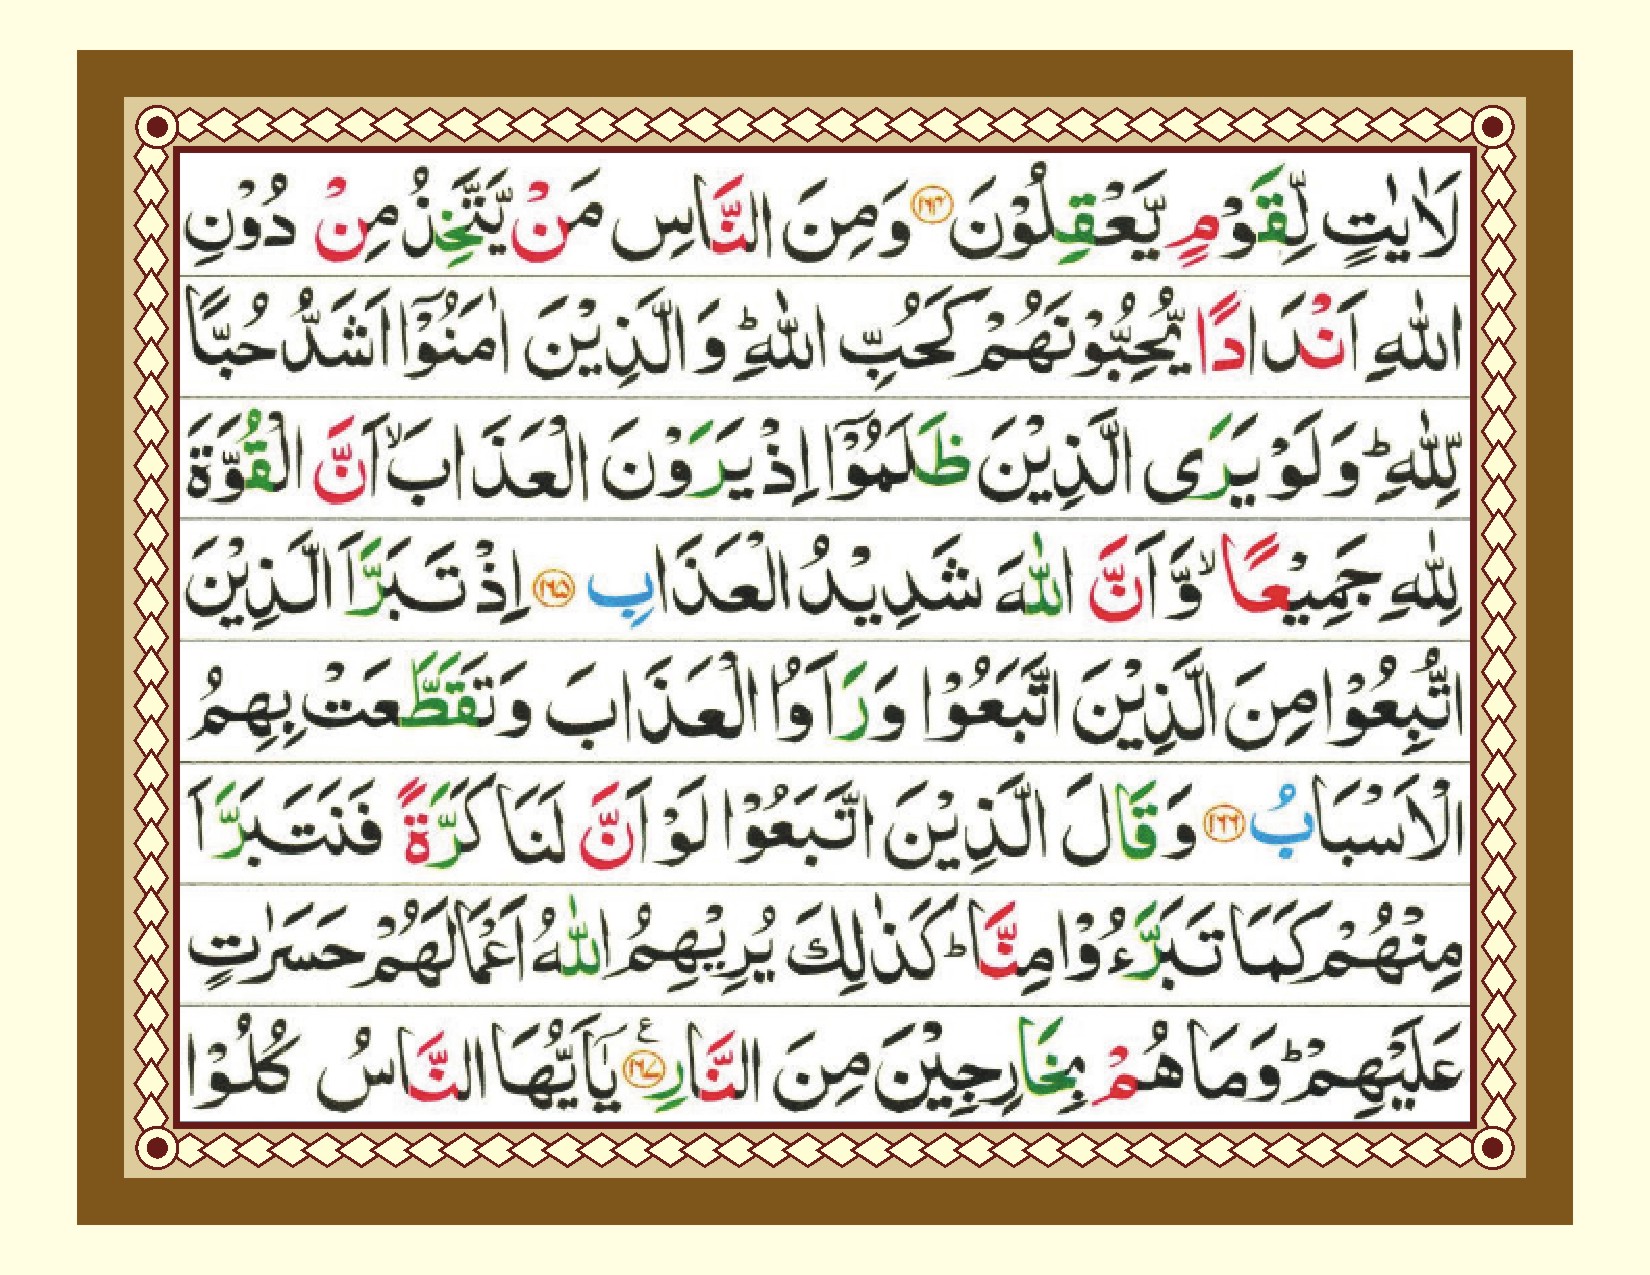 لَاٰيٰتٍ لِّقَوْمٍ يَّعْقِلُوْنَ ۝۱۶۴ وَمِنَ النَّاسِ مَنْ يَّتَّخِذُ مِنْ دُوْنِ
اللّٰهِ اَنْدَادًا يُّحِبُّوْنَهُمْ كَحُبِّ اللّٰهِ ؕ وَ الَّذِيْنَ اٰمَنُوْۤا اَشَدُّ حُبًّا
لِّلّٰهِ ؕ وَ لَوْ يَرَى الَّذِيْنَ ظَلَمُوْۤا اِذْ يَرَوْنَ الْعَذَابَ ۙ اَنَّ الْقُوَّةَ
لِلّٰهِ جَمِيْعًا ۙ وَّ اَنَّ اللّٰهَ شَدِيْدُ الْعَذَابِ ۝۱۶۵ اِذْ تَبَرَّاَ الَّذِيْنَ
اتُّبِعُوْا مِنَ الَّذِيْنَ اتَّبَعُوْا وَ رَاَوُا الْعَذَابَ وَ تَقَطَّعَتْ بِهِمُ
الْاَسْبَابُ ۝۱۶۶ وَ قَالَ الَّذِيْنَ اتَّبَعُوْا لَوْ اَنَّ لَنَا كَرَّةً فَنَتَبَرَّاَ
مِنْهُمْ كَمَا تَبَرَّءُوْا مِنَّا ؕ كَذٰلِكَ يُرِيْهِمُ اللّٰهُ اَعْمَالَهُمْ حَسَرٰتٍ
عَلَيْهِمْ ؕ وَمَا هُمْ بِخَارِجِيْنَ مِنَ النَّارِ ۝۱۶۷ ع يٰۤاَيُّهَا النَّاسُ كُلُوْا